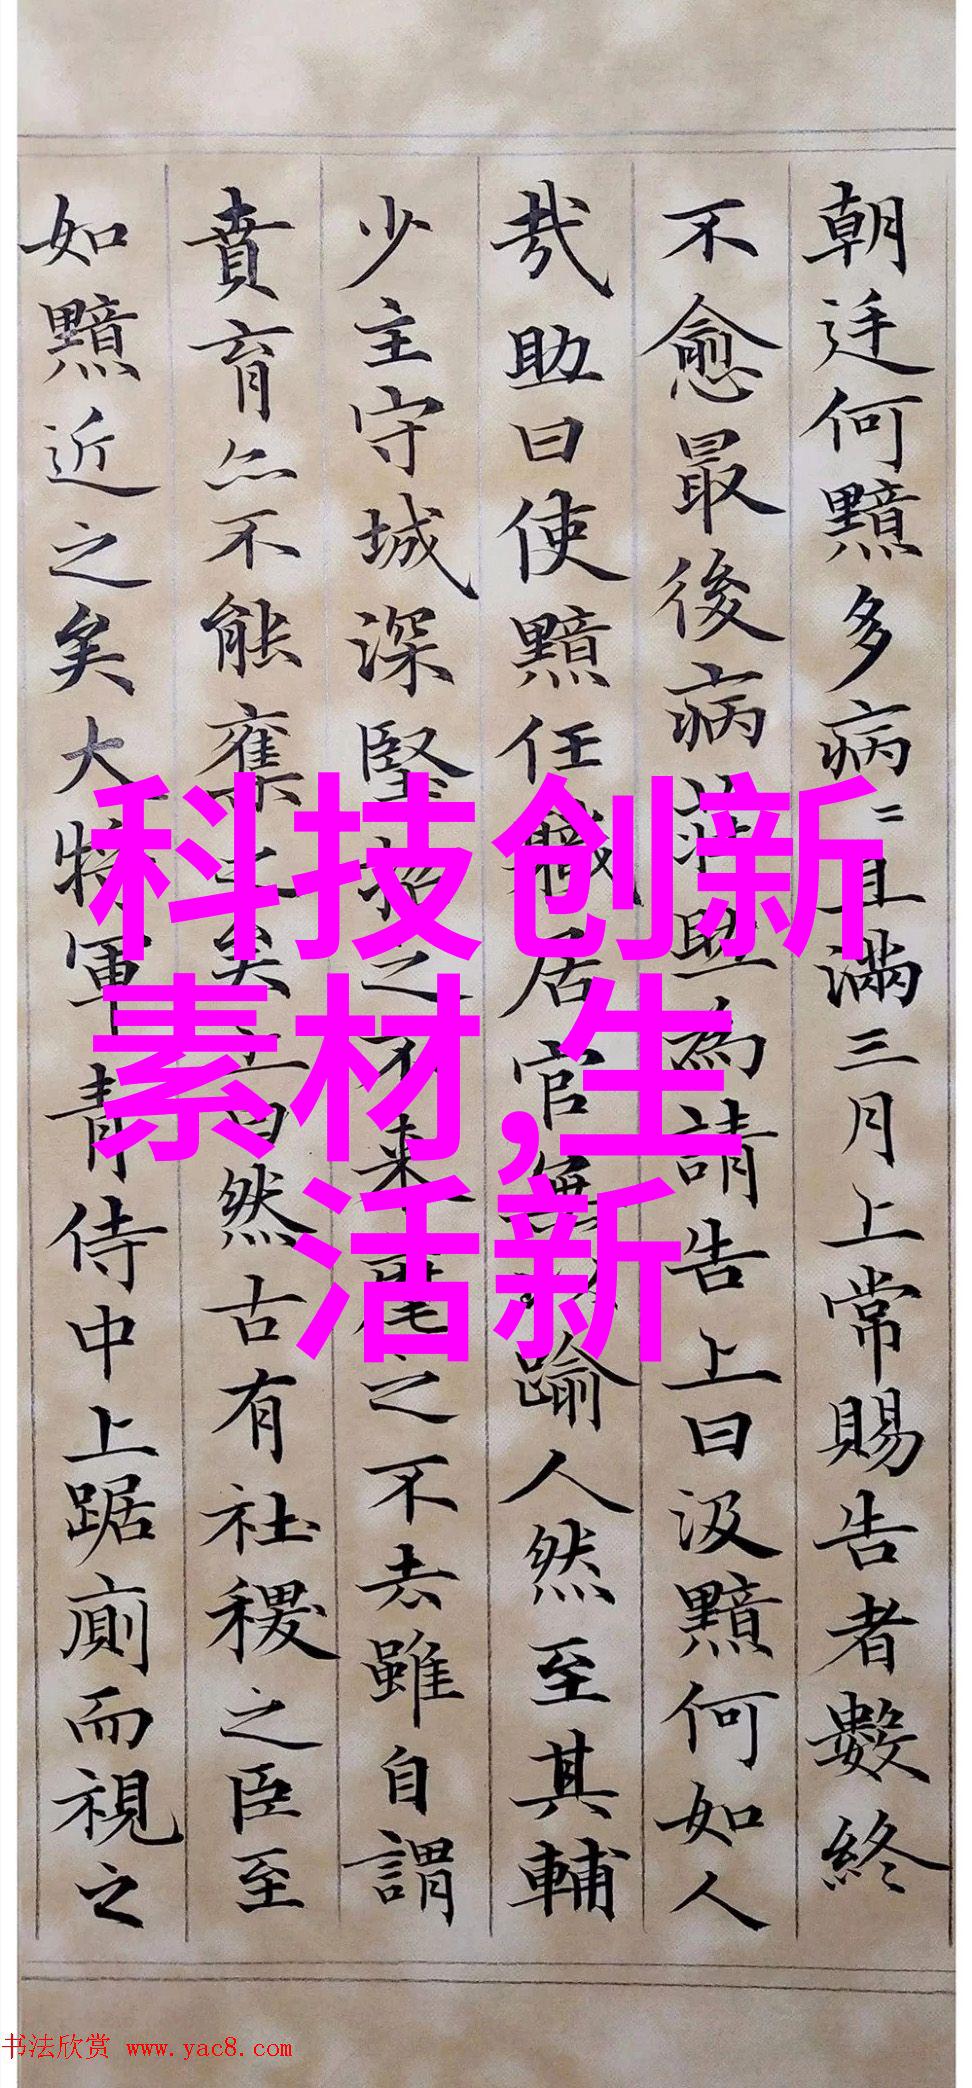 朝廷何黯多病〻且滿三月上常賜告者數終
不愈最後病莊助為請告上曰汲黯何如人
哉助曰使黯任職居官無以踰人然至其輔
少主守城深堅招之不來麾之不去雖自謂
賁育亦不能奪之矣上曰然古有社稷之臣至
如黯近之矣大將軍青侍中上踞廁而視之
科技创新
素材,生
活新
书法欣赏 www.yac8.com